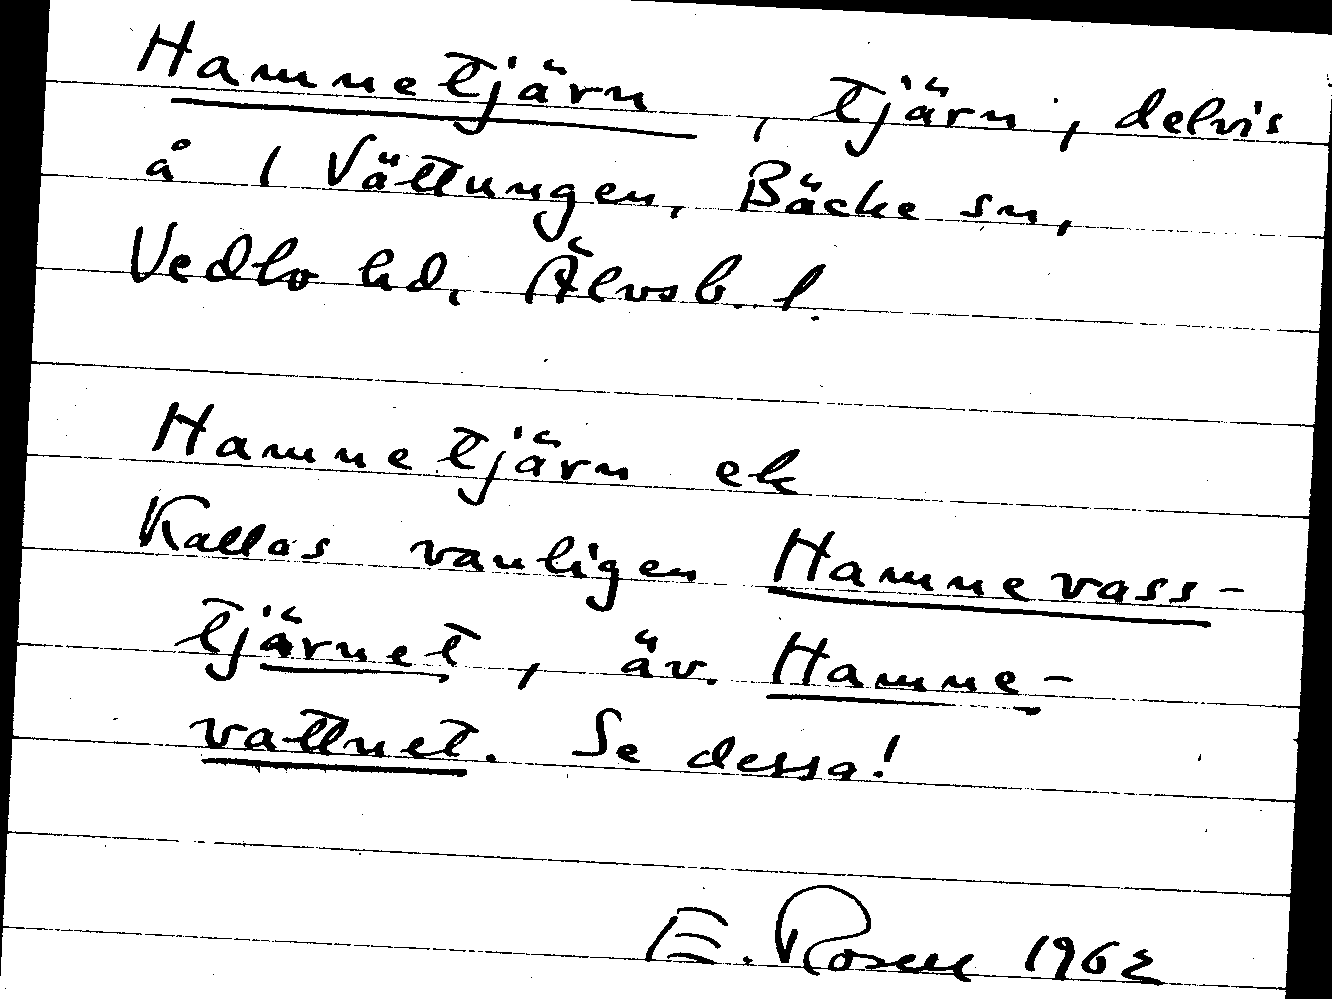 Hamnetjärn, tjärn, delvis
å 1 Vättungen, Bäcke sn,
Vedbo hd. Älvsb. l.
Hamnetjärn ek
Kallas vanligen Hamnevass-
tjärnet, äv. Hamne-
vattnet. Se dessa!
E. Rosell 1962